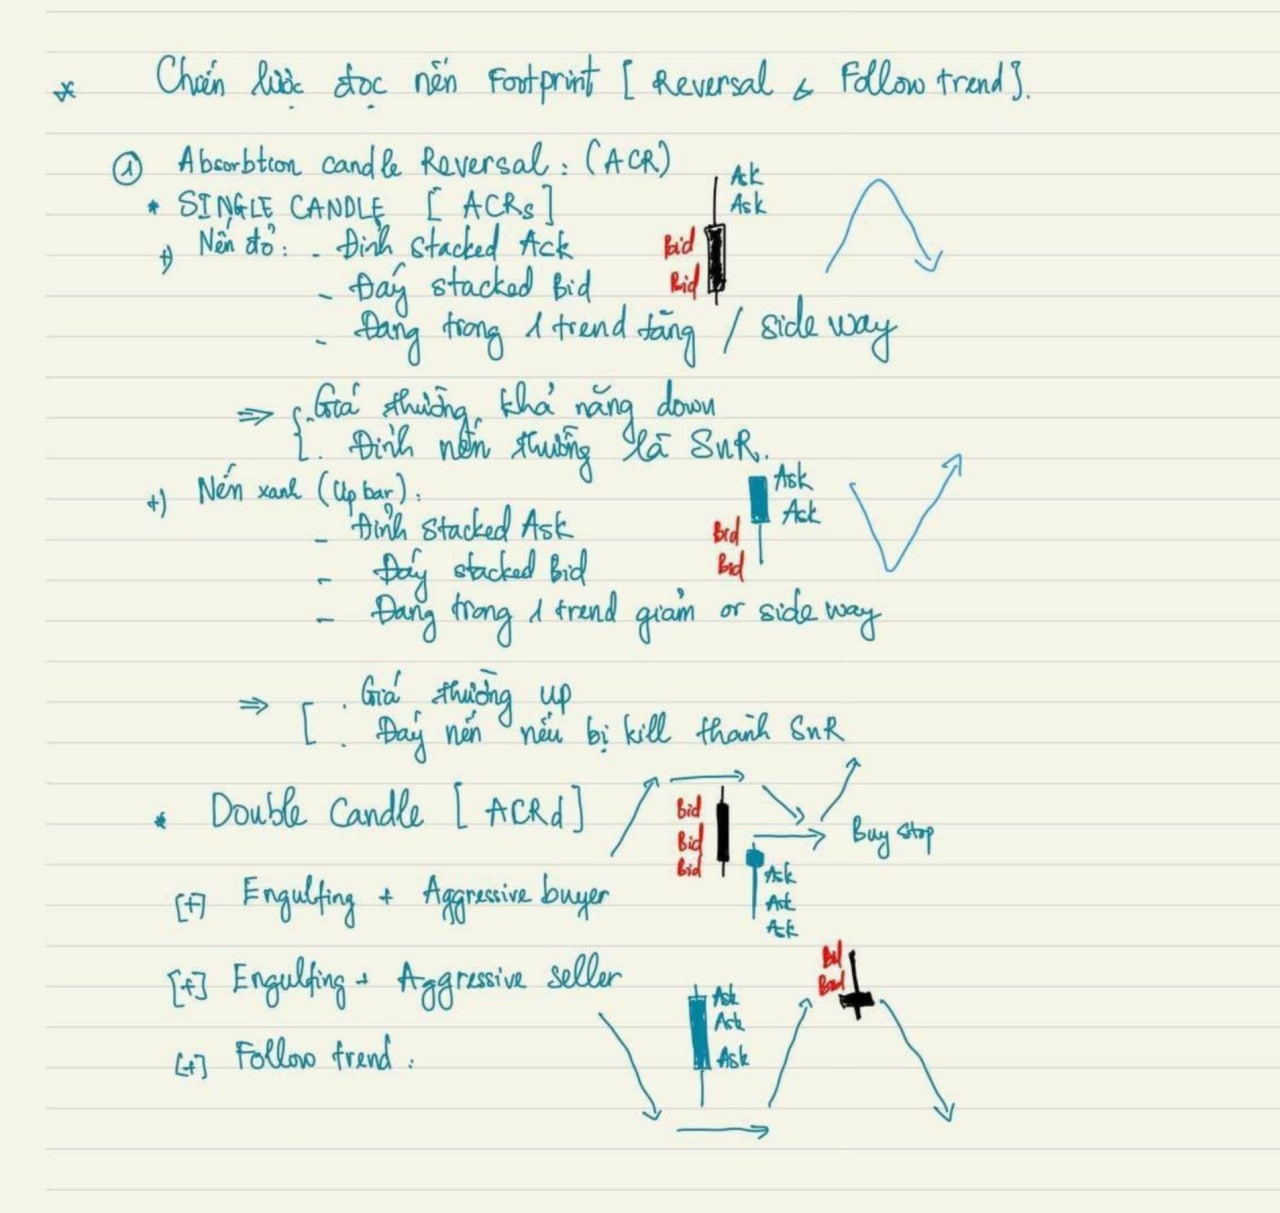 * Chiến lược đọc nến Footprint [ Reversal & Follow trend ].
① Absorbtion candle Reversal : (ACR)
* SINGLE CANDLE [ ACRs ]
Ask
Ask
+) Nến đỏ : - Đỉnh stacked Ack
Bid
- Đáy stacked Bid
Bid
- Đang trong 1 trend tăng / side way
⇒ { . Giá thường khả năng down
. Đỉnh nến thường là SnR.
+) Nến xanh (Up bar) :
Ask
Ask
- Đỉnh stacked Ask
Bid
- Đáy stacked Bid
Bid
- Đang trong 1 trend giảm or side way
⇒ [ . Giá thường up
. Đáy nến nếu bị kill thành SnR
* Double Candle [ ACRd ]
Bid
Bid
Bid
Buy stop
Ask
Ask
Ask
[+] Engulfing + Aggressive buyer
[+] Engulfing + Aggressive seller
Bid
Bid
Ask
Ask
Ask
[+] Follow trend :